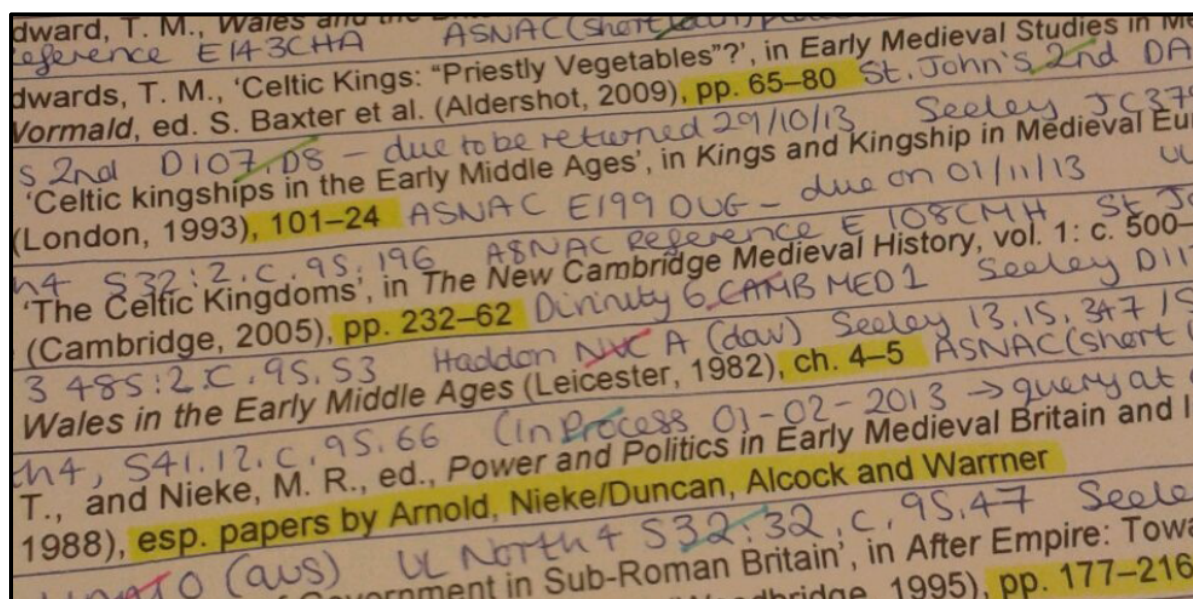 dward, T. M., Wales and the
eference E143CHA ASNAC (short
dwards, T. M., 'Celtic Kings: "Priestly Vegetables"?', in Early Medieval Studies in Me
Wormald, ed. S. Baxter et al. (Aldershot, 2009), pp. 65–80 St. John's 2nd DA
s 2nd D107.D8 – due to be returned 29/10/13 Seeley JC379
'Celtic kingships in the Early Middle Ages', in Kings and Kingship in Medieval Eu
(London, 1993), 101–24 ASNAC E199 DUG – due on 01/11/13 UL
h4 S32:2.c.95.196 ASNAC Reference E 108CMH St Jo
'The Celtic Kingdoms', in The New Cambridge Medieval History, vol. 1: c. 500–
(Cambridge, 2005), pp. 232–62 Divinity 6 CAMB MED 1 Seeley D11
3 485:2.C.95.53 Haddon A (dav) Seeley 13.15.347
Wales in the Early Middle Ages (Leicester, 1982), ch. 4–5 ASNAC (short
th4, S41.12.c.95.66 (In Process 01-02-2013 → query at
T., and Nieke, M. R., ed., Power and Politics in Early Medieval Britain and I
1988), esp. papers by Arnold, Nieke/Duncan, Alcock and Warrner
(aus) UL North 4 S32:32.c.95.47 Seele
Government in Sub-Roman Britain', in After Empire: Towa
1995), pp. 177–216